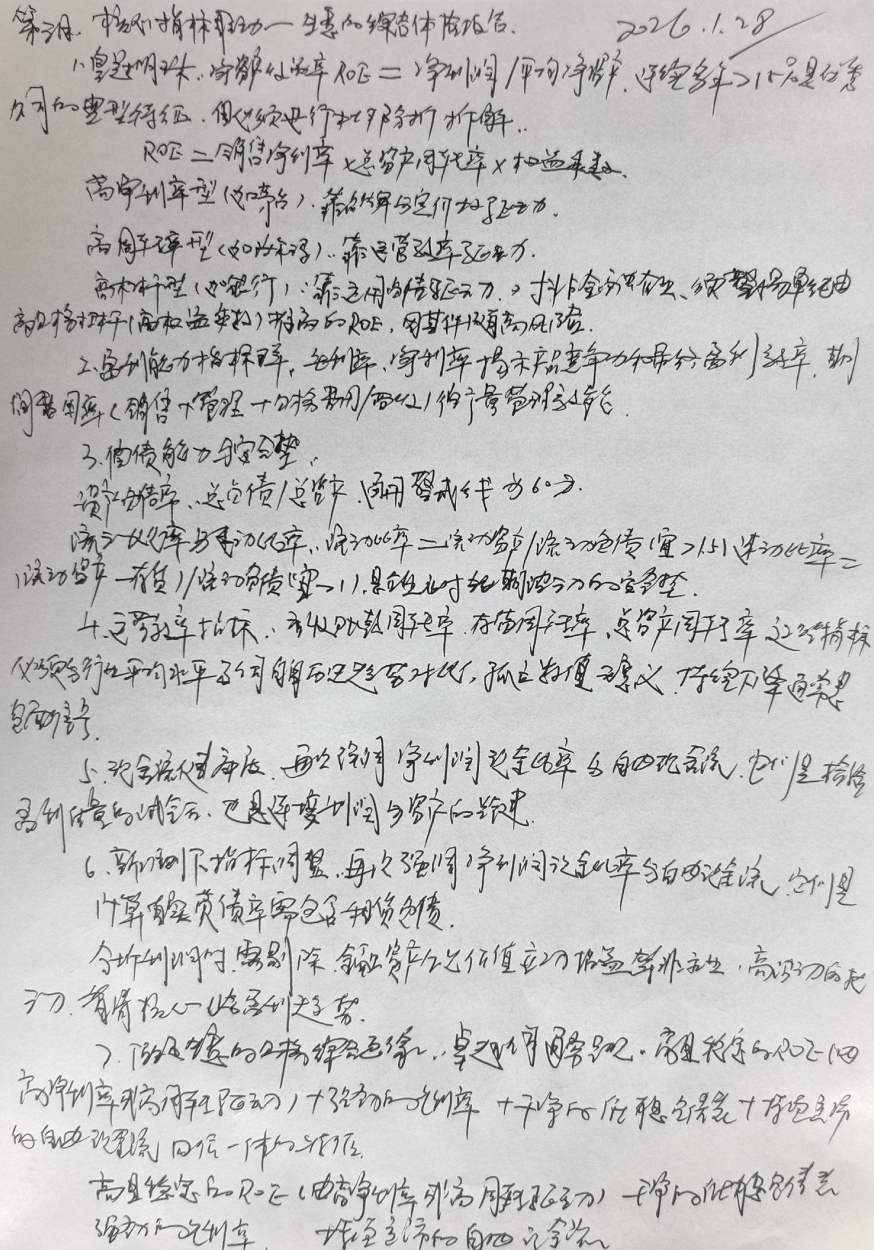 核心指标驱动—生意的综合体检报告 2026.1.28
1. 皇冠明珠、净资产收益率 ROE = 净利润/平均净资产,连续多年>15%是优秀
公司的典型特征,但必须进行杜邦分析拆解.
ROE = 销售净利率 x 总资产周转率 x 权益乘数.
高净利率型(如茅台).靠品牌与定价权驱动力.
高周转率型(如沃尔玛).靠运营效率驱动力.
高杠杆型(如银行):靠运用负债驱动力.
高杠杆(高权益乘数)推高的ROE,因其伴随高风险.
2. 盈利能力指标群,毛利率、净利率揭示产品竞争力和最终盈利效率,期
间费用率(销售+管理+财务费用/营收)衡量管理效能.
3. 偿债能力与安全垫.
资产负债率、总负债/总资产,通用警戒线为60%.
流动比率与速动比率:流动比率=流动资产/流动负债(宜>1.5)速动比率=
(流动资产-存货)/流动负债(宜>1),是应对短期压力的安全垫.
4. 运营效率指标:应收账款周转率、存货周转率、总资产周转率 这些指标
必须与行业平均水平与公司自身历史趋势对比,孤立数值无意义,持续下降通常是
信号.
5. 现金流健康度,再次强调净利润现金比率与自由现金流,它们是检验
盈利质量的试金石,也是连接利润与资产的
6. 新准则下指标调整,再次强调净利润现金比率与自由现金流,它们是
计算真实负债率需包含租赁负债.
分析利润时,需剔除金融资产公允价值变动损益等非主业、高波动的
动,看清核心业务盈利趋势.
7. 优秀生意的财务综合画像:卓越 高且稳定的ROE(由
高净利率或高周转驱动)+强劲的毛利率+干净的低有息负债+持续充沛
的自由现金流 四位一体的
高且稳定的ROE(由高净利率或高周转驱动) 干净的低有息负债
强劲的毛利率 持续充沛的自由现金流